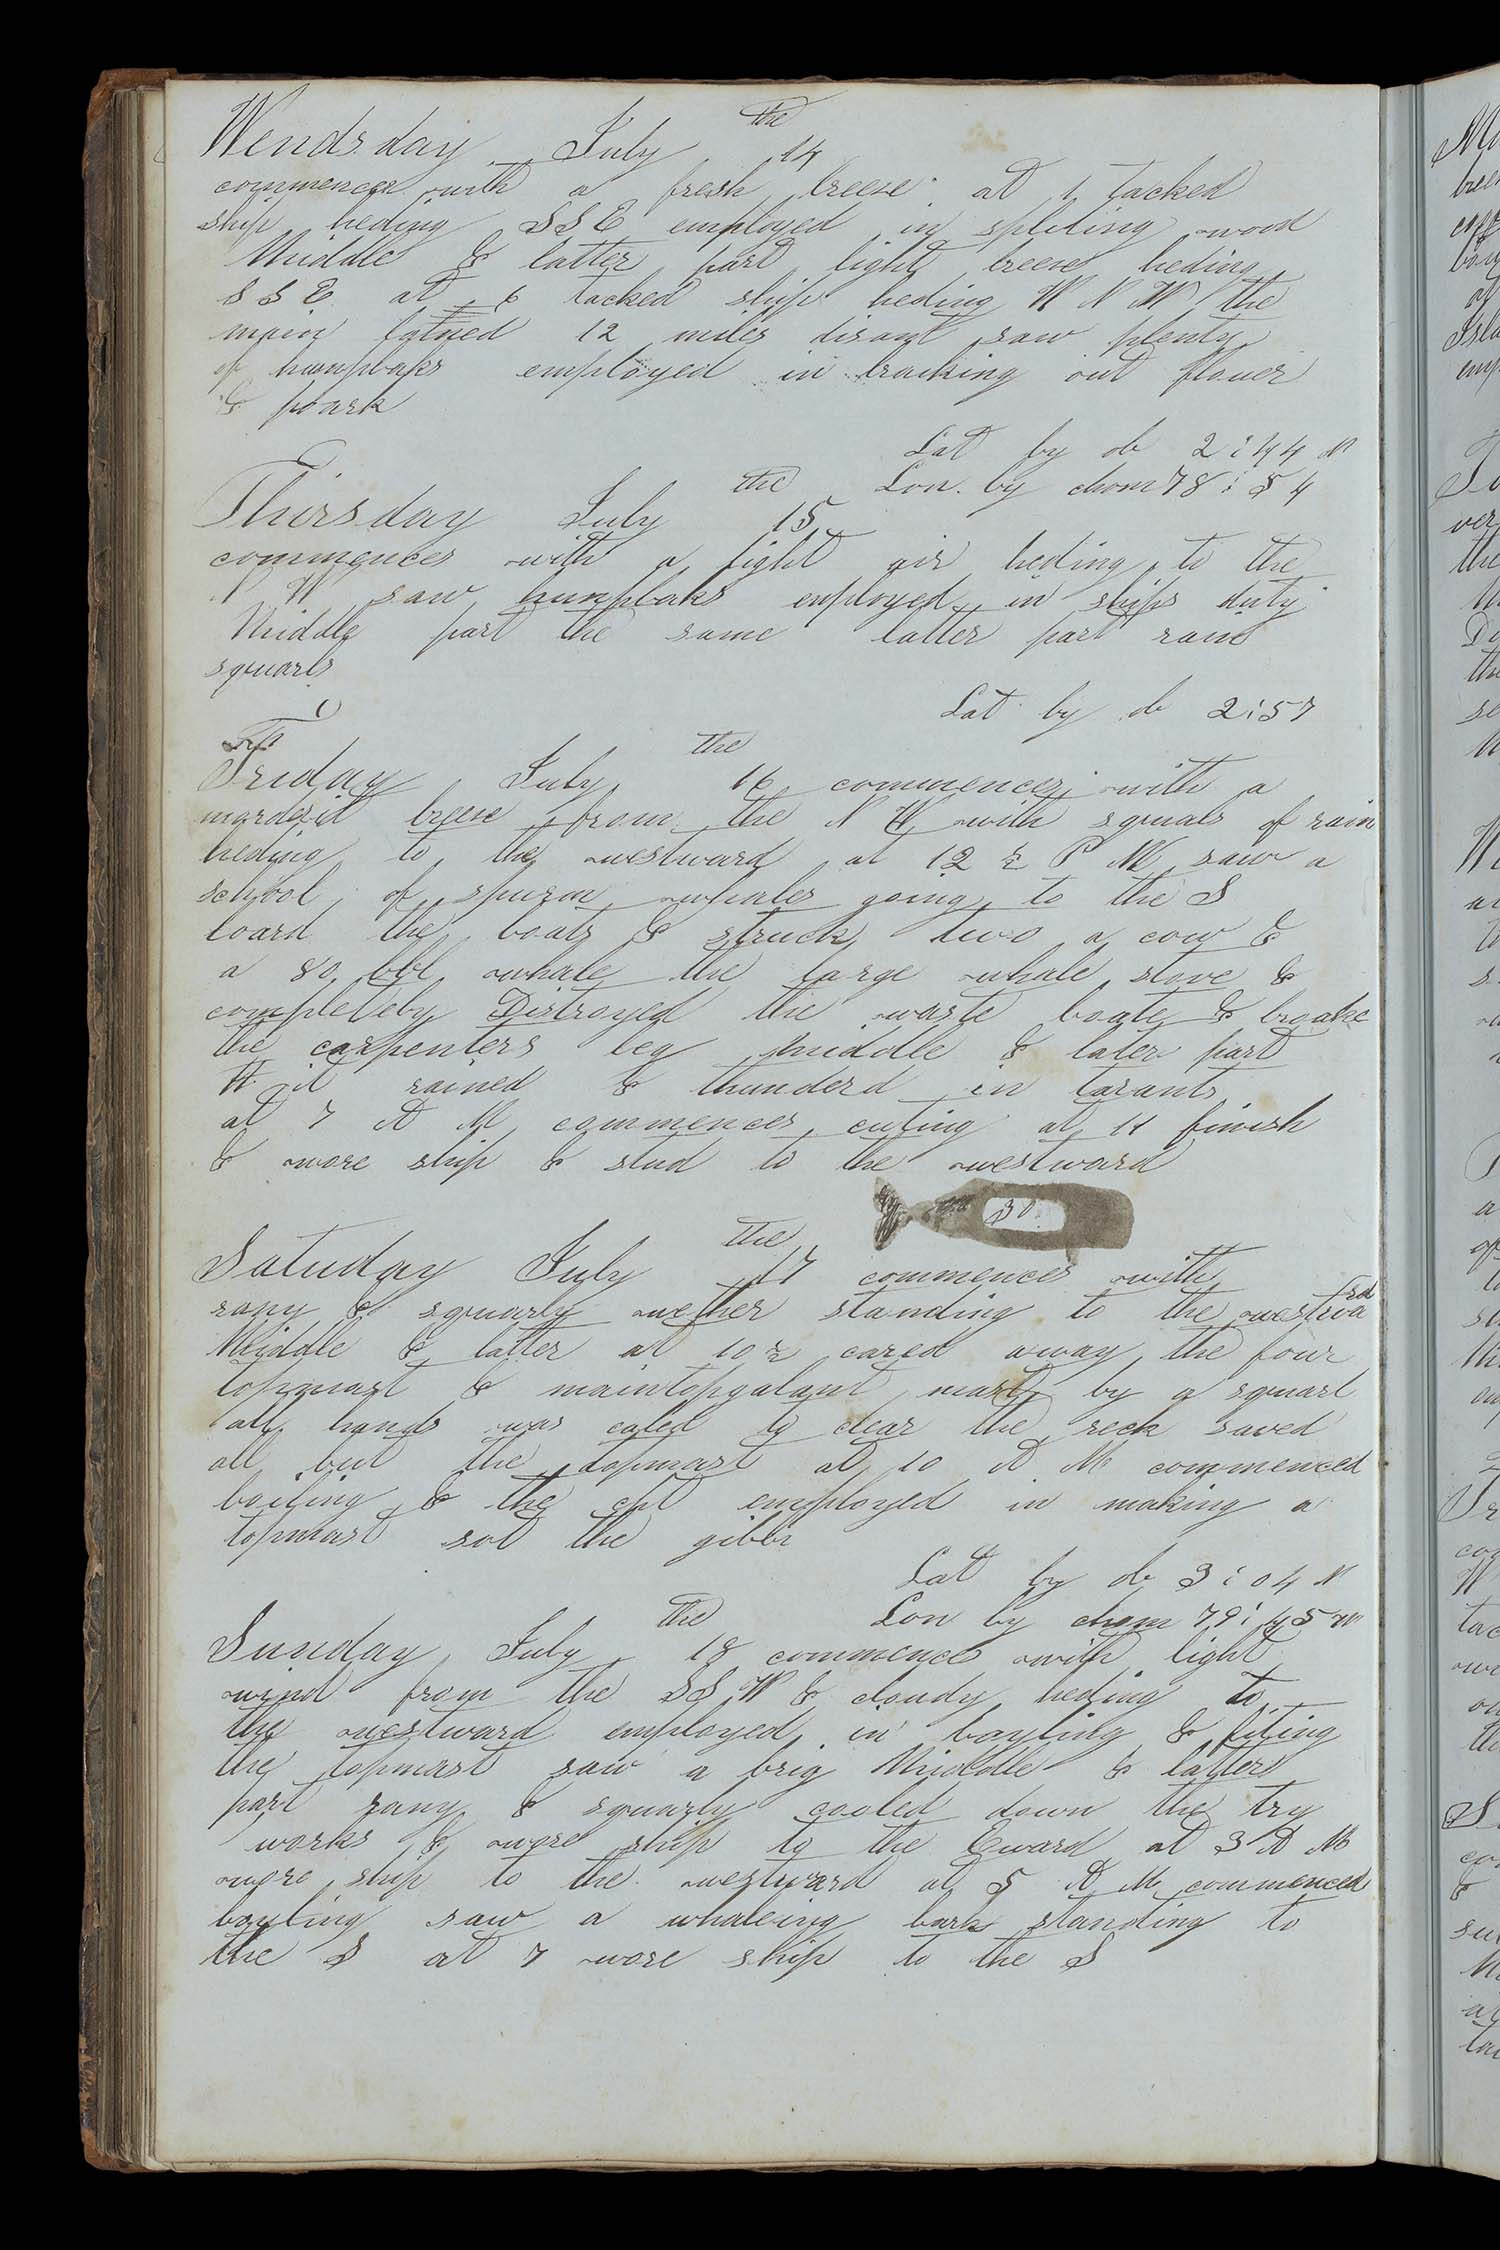 Wendsday July the 14
commences with a fresh breese at 1 tacked
ship heding SSE employed in spliting wood
Middle & latter part light breese heding
SSE at 6 tacked ship heding W N W the
main 12 miles disant saw plenty
of humpbaks employed in braking out flouer
& poark
Lat by ob 2:44 N
Lon. by chom 78:54
Thirsday July the 15
commences with a light air heding to the
N W saw humpbaks employed in ships duty
Middle part the same latter part rain
squarls
Lat by ob 2:57
Friday July the 16 commences with a
breese from the N W with squals of rain
heding to the westward at 12 ½ P M saw a
school of spurm whales going to the S
loard the boats & struck two a cow &
a 80 bbl whale the large whale stove &
completeby Distroyed the waste boate & broake
the carpenters leg Middle & later part
it rained & thunderd in tarants
at 7 A M commences cuting at 11 finish
& wore ship & stud to the westward
30
Saturday July the 17 commences with
rany & squarly wether standing to the westward
Meiddle & latter at 10 ½ cared away the four
topmast & maintopgalant mast by a squarl
all hands was caled to clear the reck saved
all but the topmast at 10 A M commenced
boiling & the employed in making a
topmast sot the gibbr
Lat by ob 3:04 N
Lon by chom 79:45 W
Sunday July the 18 commences with light
wind from the SSW & cloudy heding to
the westward employed in boyling & fiting
the topmast saw a brig Middle & latter
part rany & squarly cooled down the try
works & wore ship to the Eward at 3 A M
wore ship to the westward at 5 A M commenced
boyling saw a whaleing bark standing to
the S at 7 wore ship to the S